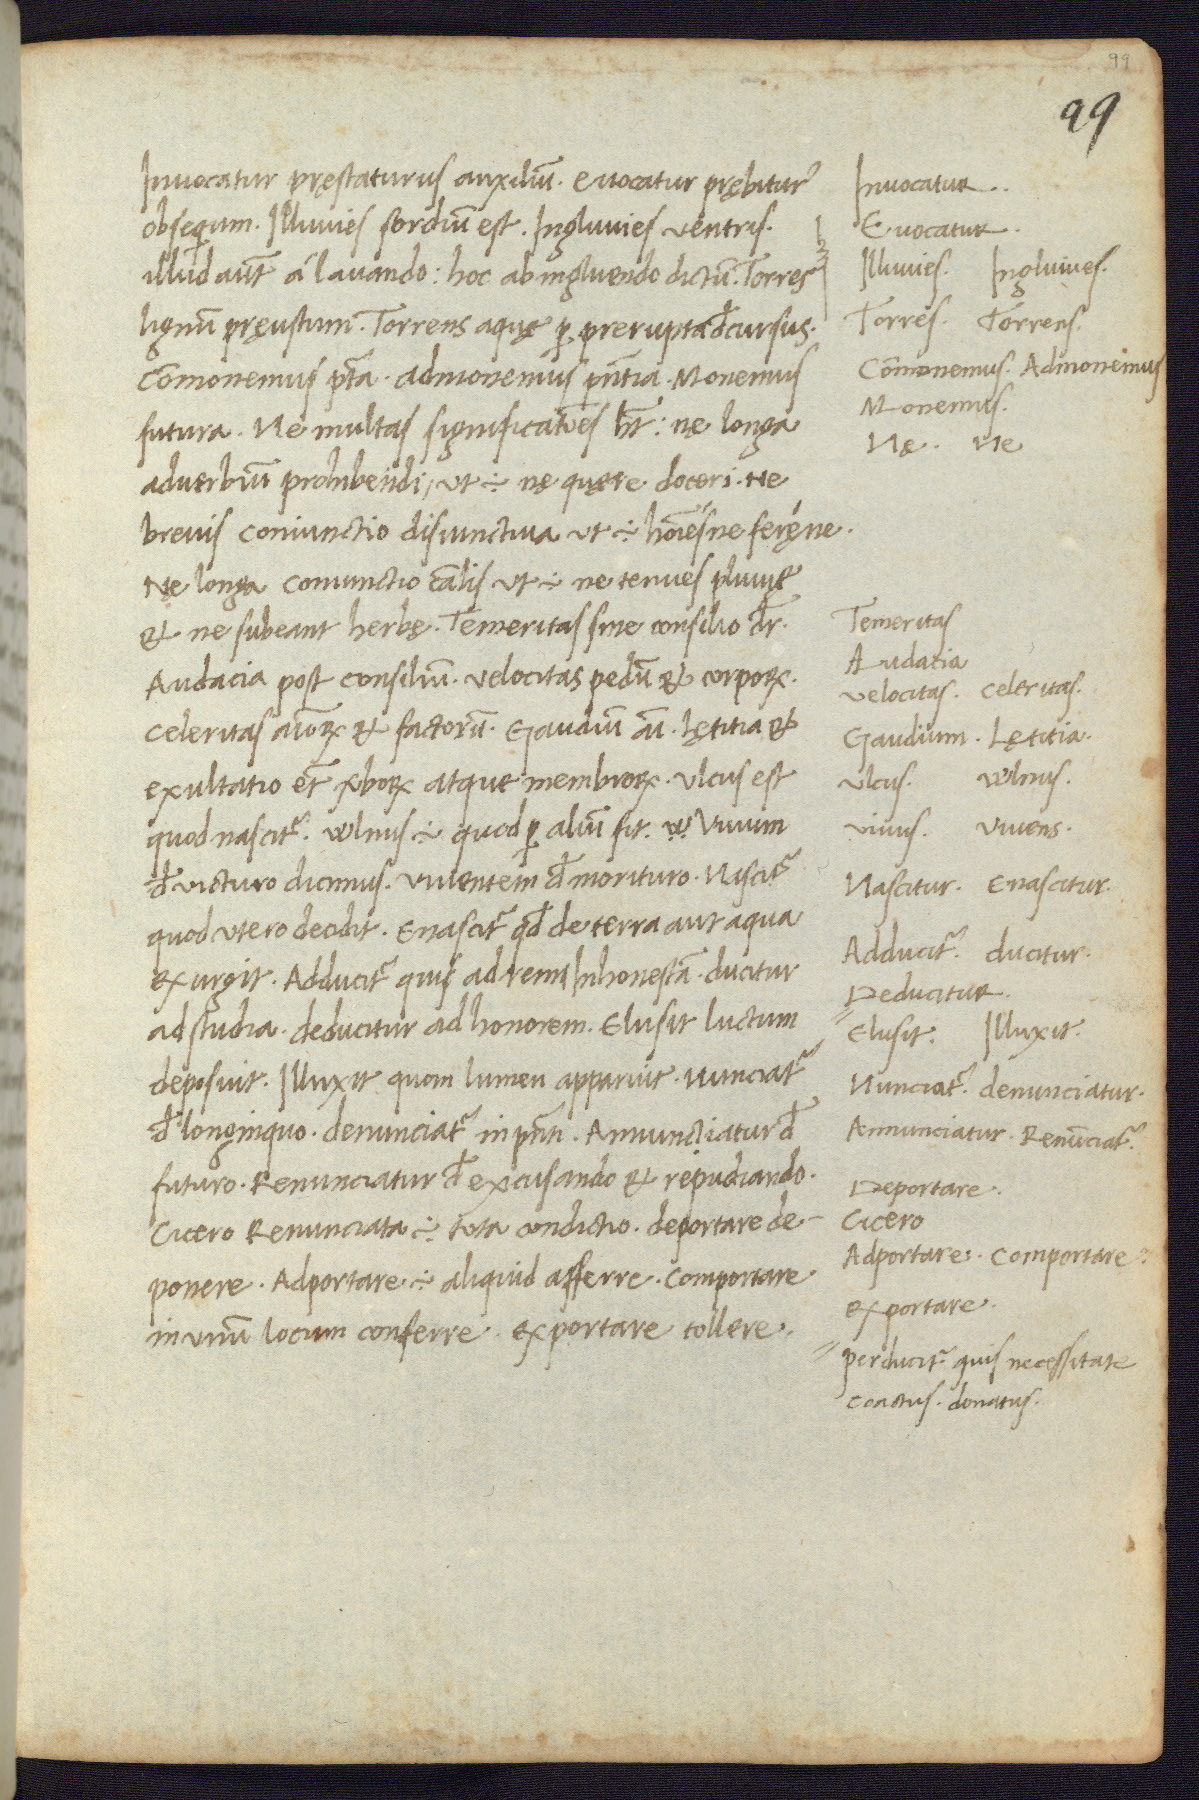 99
99
Inuocatur pręstaturus auxiliū. euocatur prębiturꝰ
obsequium. Illuuies sordiū est. Ingluuies uentris.
illud aūt á lauando: hoc ab ingluendo dictū. Torres
lignū pręustum. Torrens aquę ꝑ prerupta đcursus.
Cōmonemus p̄ta. admonemus pn̄tia. Monemus
futura. Ne multas significatiōes ht̄: nę longa
aduerbiū prohibendi, ut ÷ nę quęre doceri. Ne
breuis coniunctio disiunctiua ut ÷ hoīesne feręne.
Nę longa coniunctio cālis ut ÷ ne tenues pluuię
& ne subeant herbę. Temeritas sine consilio dr̄.
Audacia post consiliū. velocitas pedū & corporꝝ.
Celeritas aīorꝝ & factorū. Gaudiū aī. Lętitia &
exultatio et̄ v̄borꝝ atque membrorꝝ. Vlcus est
quod nascit᷒. vvlnus ÷ quod ꝑ aliū fit. Viuum
đ victuro dicimus. viuentem đ morituro. Nascit᷒
quod vtero decidit. Enascit᷒ qđ de terra aut aqua
exurgit. Adducit᷒ quis ad rem Inhonestā. ducitur
ad studia. deducitur ad honorem. Elusit luctum
deposuit. Illuxit quom lumen apparuit. Nunciat᷒
đ longinquo. denunciat᷒ in pn̄ti. Annunctiatur đ
futuro. Renunciatur đ excusando & repudiando.
Cicero Renunciata ÷ tota condictio. deportare de-
ponere. Adportare ÷ aliquid afferre. Comportare
in vnū locum conferre. exportare tollere.
Inuocatur..
Euocatur.
Illuuies. Ingluuies.
Torres. Torrens.
Cōmonemus. Admonemus
Monemus.
Nę. Ne
Temeritas
Audatia
velocitas. celeritas.
Gaudium. Lętitia.
vlcus. vvlnus.
viuus. viuens.
Nascitur. Enascitur.
Adducit᷒. ducitur.
Deducitur.
Elusit. Illuxit.
Nunciat᷒. denunciatur.
Annunciatur. Renūciat᷒.
Deportare.
Cicero
Adportare. Comportare.
exportare.
perducit᷒ quis necessitate
coactus. donatus.